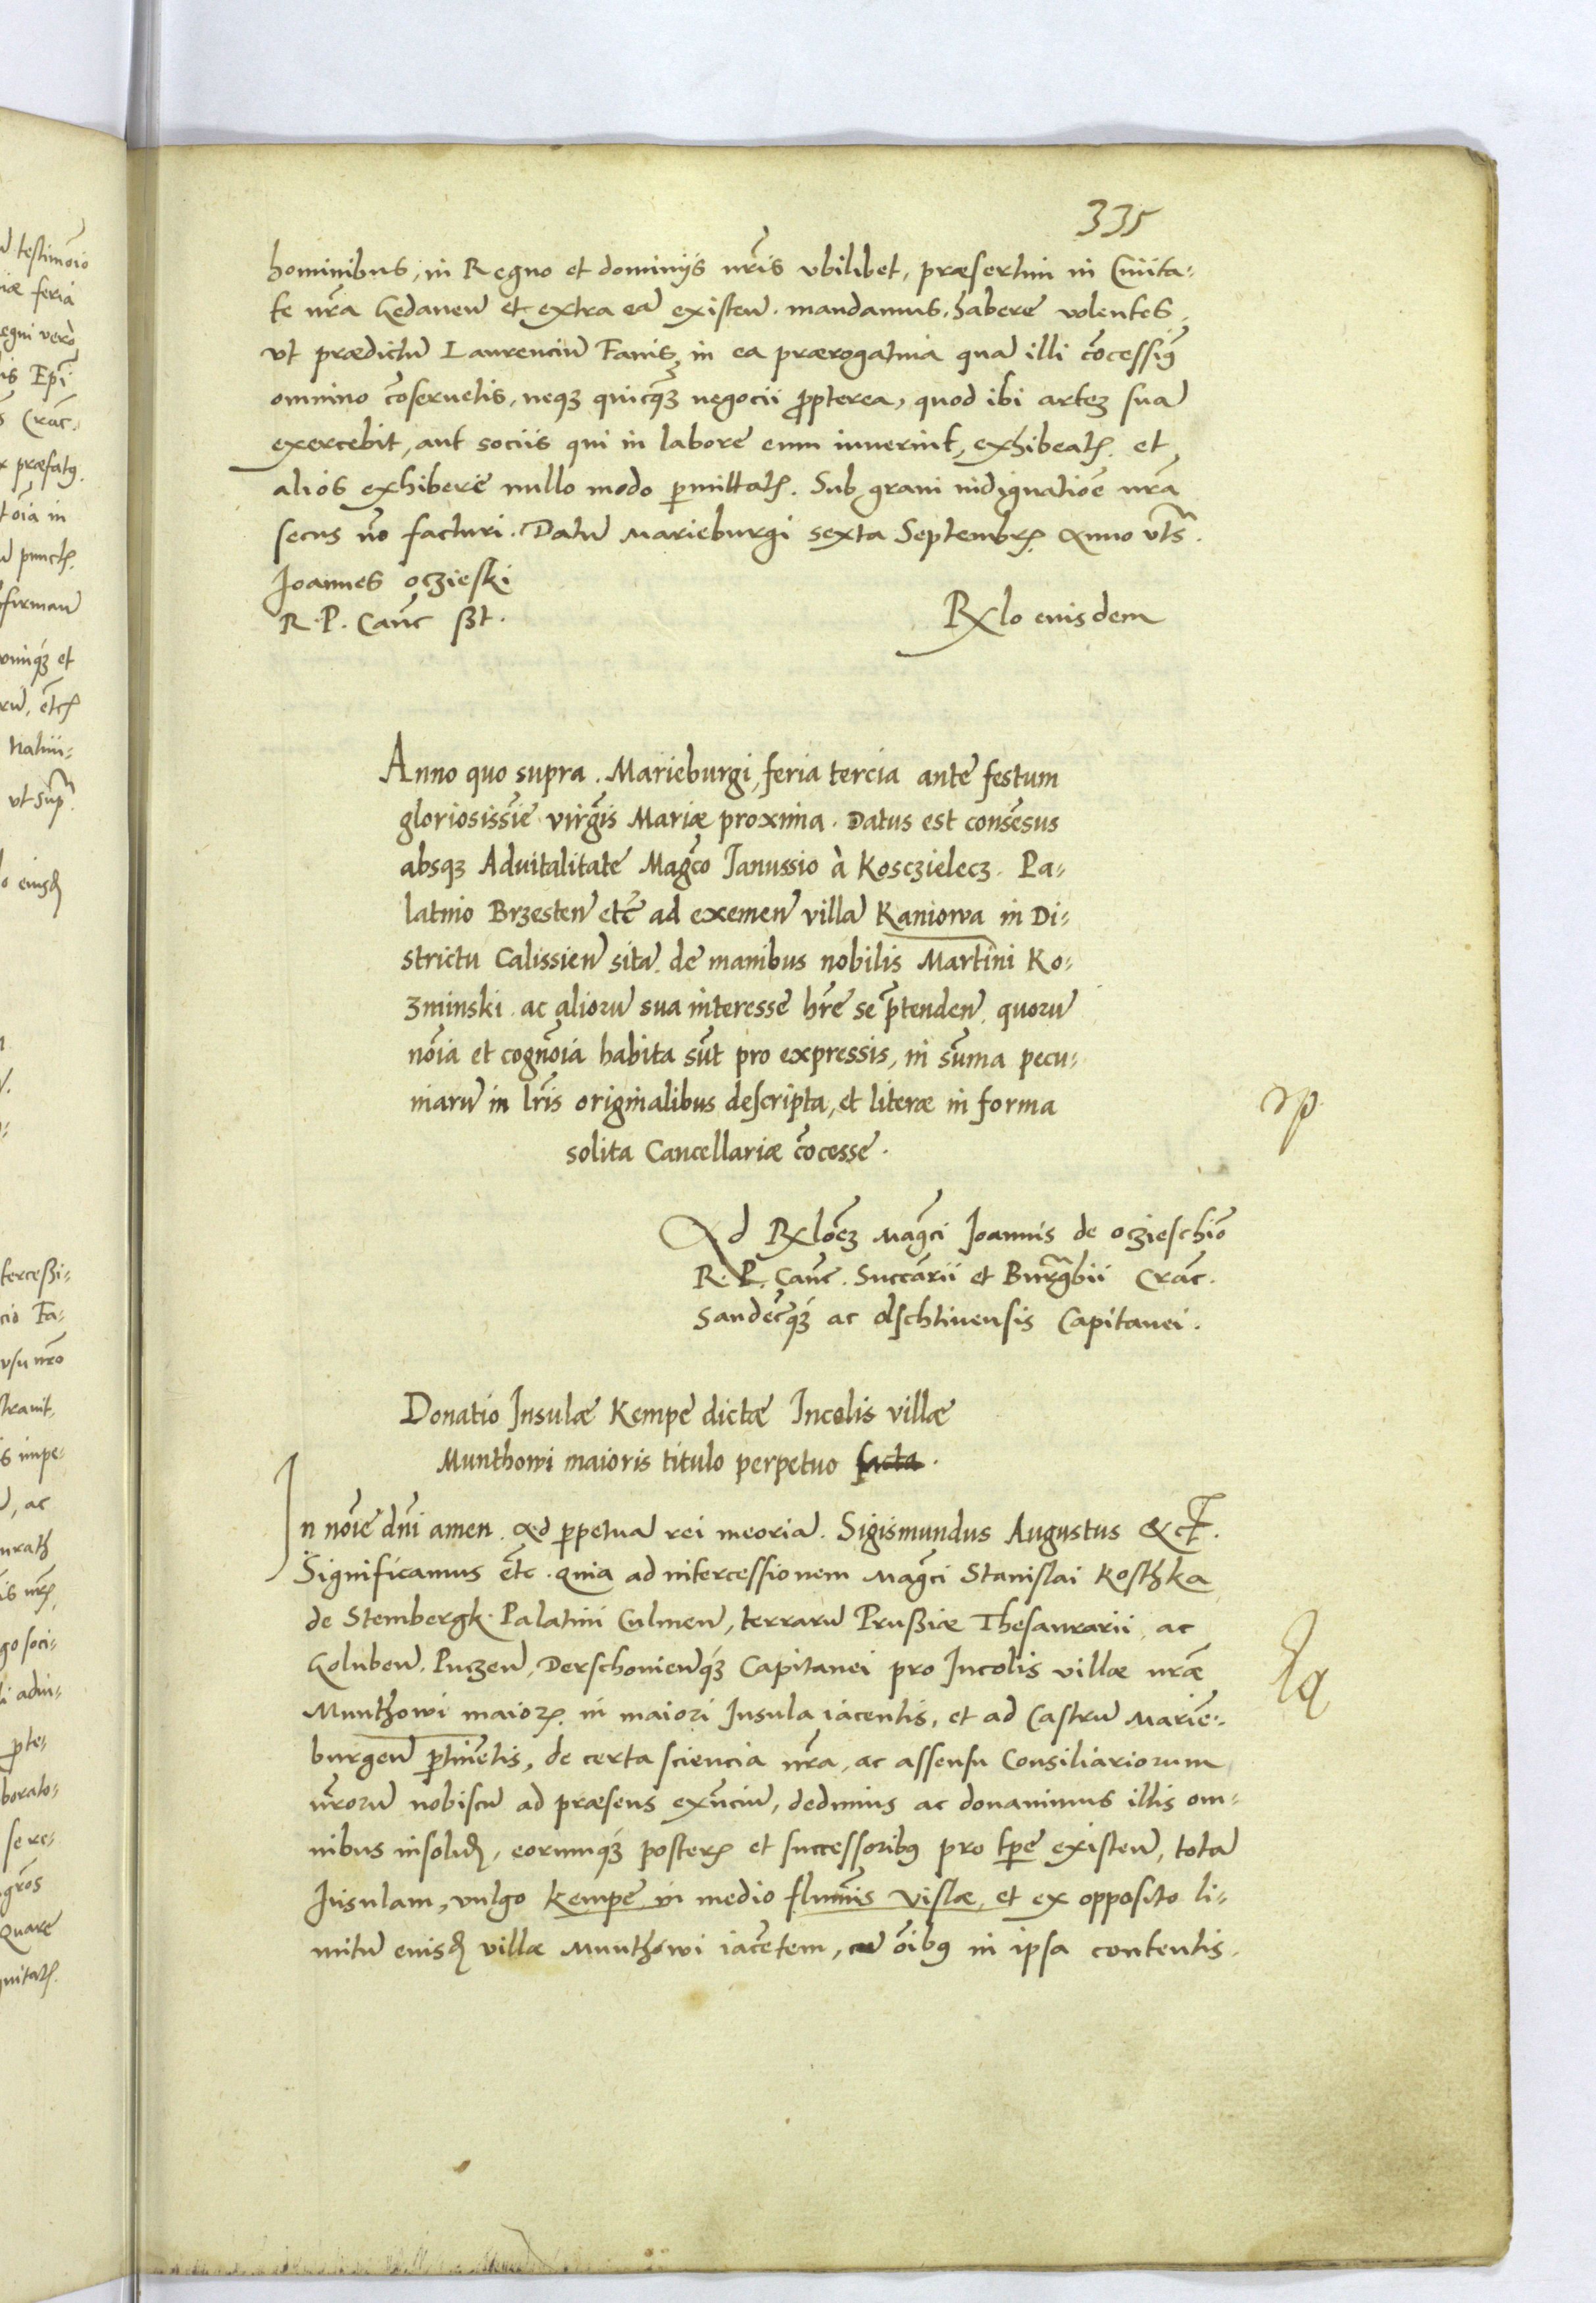 335
hominibus, in Regno et dominiis nr̃is vbilibet, præsertim in Ciuita-
te nr̃a Gedanen̄ et extra eā existen̄. mandamus, habere volentes,
vt prædictū Laurenciū Fanis, in ea prærogatiua quā illi cōcessimꝰ
omnino cōseruetis, neqꝫ quicqꝫ negocii ꝓpterea, quod ibi artē suā
exercebit, aut sociis qui in labore eum iuuerint, exhibeatꝭ. et
alios exhibere nullo modo ꝑmittatꝭ. Sub graui indignatiōe nr̃a
secus nō facturi. Datū Marieburgi sexta Septembrꝭ Anno vts̃.
Joannes oczieski
R. P. Canc̃ ßt.
Rxlo eiusdem
Anno quo supra. Marieburgi, feria tercia ante festum
gloriosissīe virgīs Mariæ proxima. Datus est consēsus
absqꝫ Aduitalitate Magc̃o Janussio à Kosczielecz. Pa-
latnio Brzesten̄ etc̃ ad exemen̄ villā Kaniowa in Di-
strictu Calissien̄ sitā. de manibus nobilis Martini Ko-
zminski. ac aliorū sua interesse hr̃e se p̃tenden̄. quorū
nōia et cognōia habita sūt pro expressis, in sūma pecu-
niarū in lr̃is originalibus descripta, et literæ in forma
solita Cancellariæ cōcesse.
Ad Rxlōeꝫ Magc̃i Joannis de oczieschīo
R. P. Canc̃. Succãrii et Burg̃bii Crac̃.
Sandec̃qꝫ ac olschtinensis Capitanei.
Donatio Insulæ Kempe dictæ Incolis villæ
Munthowi maioris titulo perpetuo facta.
In nōie dn̄i amen. Ad ꝑpetuā rei meoriā. Sigismundus Augustus &c̃.
Significamus etc̃. quia ad intercessionem Magc̃i Stanislai Kosthka
de Stembergk. Palatini Culmen̄, terrarū Prußiæ Thesaurarii, ac
Goluben̄. Puczen̄, Derschouien̄qꝫ Capitanei pro Incolis villæ nr̃æ
Munthowi maiorꝭ. in maiori Insula iacentis, et ad Castrū Mariē-
burgen̄ ꝑtinētis, de certa sciencia nr̃a, ac assensu Consiliariorum
nr̃orū nobiscū ad præsens exn̄ciū, dedimus ac donauimus illis om-
nibus insolidꝭ, eorumqꝫ posterꝭ et successoribꝰ pro tp̃e existen̄, totā
Insulam, vulgo Kempe in medio flumīis Vislæ, et ex opposito li-
mitū eiusdꝭ villæ Munthowi iacētem, cū ōibꝰ in ipsa contentis.